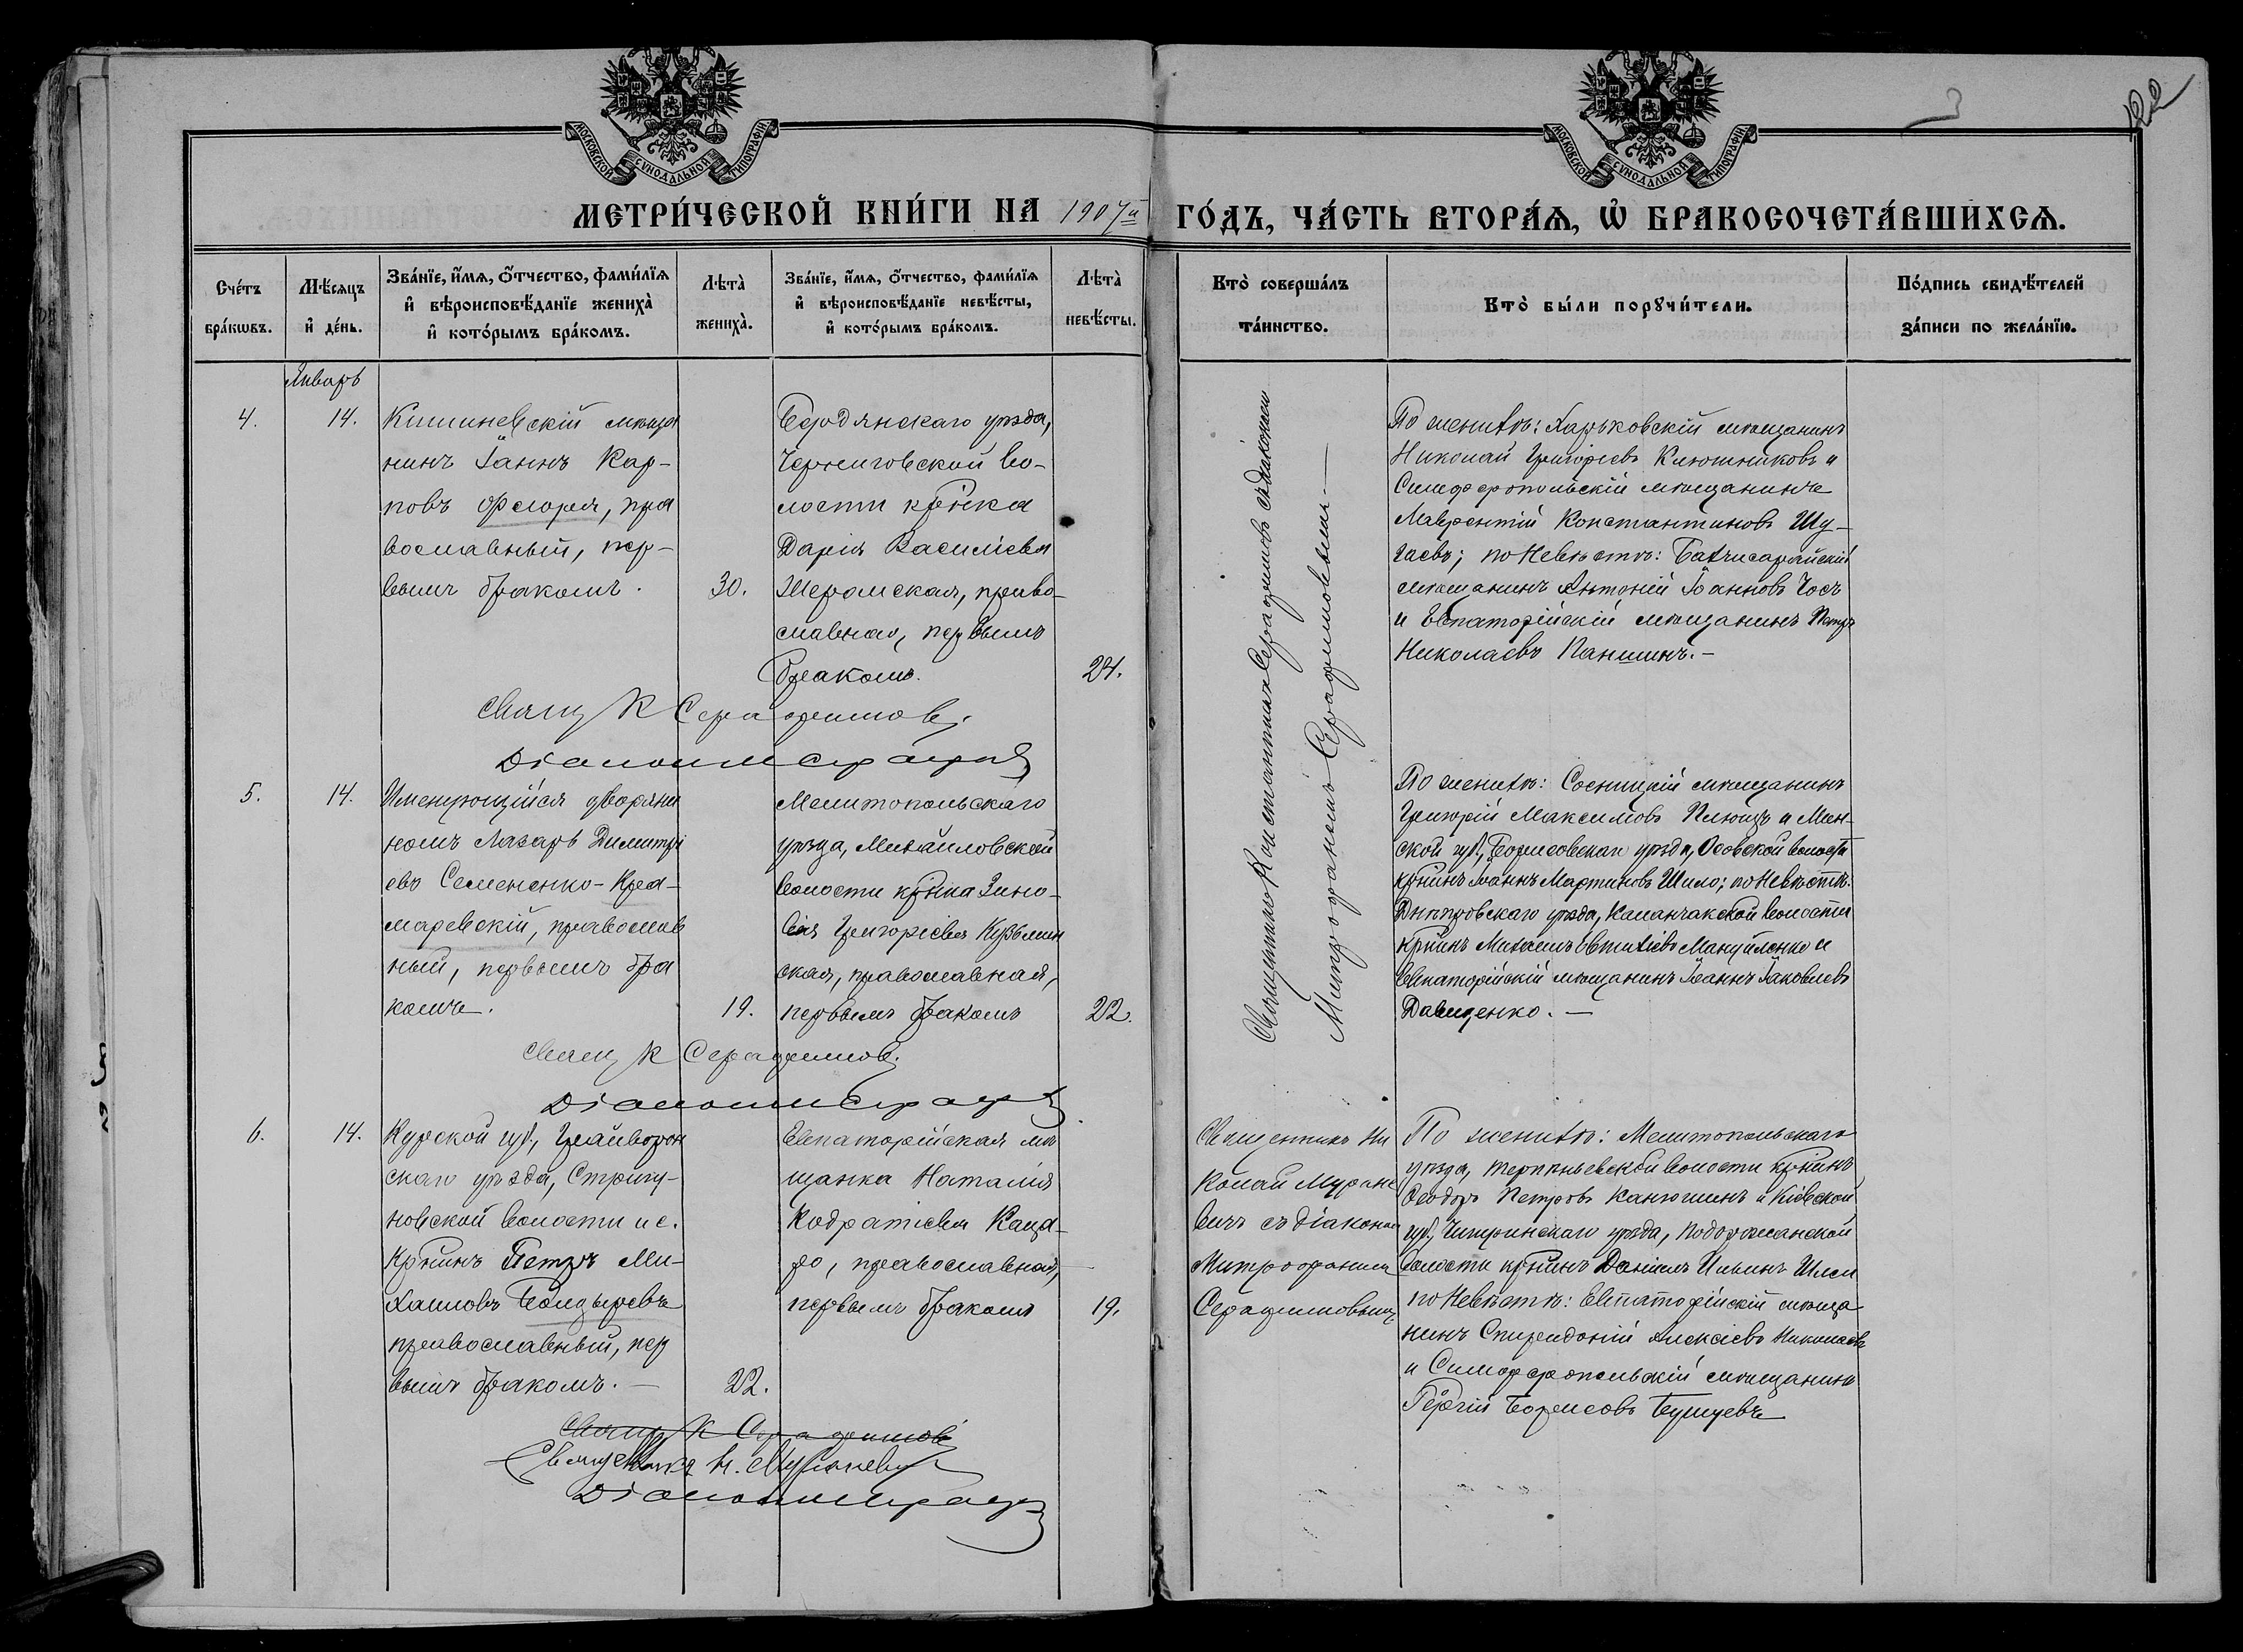 МОСКОВСКОЙ СУНОДАЛЬНОЙ ТИПОГРАФІИ
МОСКОВСКОЙ СУНОДАЛЬНОЙ ТИПОГРАФІИ
122
МЕТРИ́ЧЕСКОЙ КНИ́ГИ НА 1907й ГО́ДЪ, ЧА́СТЬ ВТОРА́Я, Ѡ БРАКОСОЧЕТА́ВШИХСЯ.
Сче́тъ бра́кѡвъ.
Мѣ́сяцъ и де́нь.
Зва́нїе, и́мя, о́тчество, фами́лїя
и вѣроисповѣ́данїе жениха̀
и кото́рымъ бра́комъ.
Лѣта̀ жениха̀.
Зва́нїе, и́мя, о́тчество, фами́лїя
и вѣроисповѣ́данїе невѣ́сты,
и кото́рымъ бра́комъ.
Лѣта̀ невѣ́сты.
Кто̀ соверша́лъ та́инство.
Кто̀ бы́ли порꙋчи́тели.
По́дпись свидѣ́телей за́писи по жела́нїю.
Январь
4.
14.
Кишиневскій мѣща
нинъ Іаннъ Кар-
повъ Флоря, пра
вославный, пер-
вымъ бракомъ.
30.
Бердянскаго уѣзда,
Черниговской во-
лости кр҃нка
Дарія Василіева
Шерамская, право-
славная, первымъ
бракомъ.
24.
Свящ К Серафимовъ.
Діаконъ М Сераф
Священникъ Константинъ Серафимовъ съ діакономъ
Митрофаномъ Серафимовымъ.
По женихѣ: Харьковскій мѣщанинъ
Николай Григоріевъ Ключниковъ и
Симферопольскій мѣщанинъ
Лаврентій Константиновъ Шу-
гаевъ; по Невѣстѣ: Бахчисарайскій
мѣщанинъ Антоній Іоанновъ Чосъ
и Евпаторійскій мѣщанинъ Петръ
Николаевъ Паншинъ.-
5.
14.
Именующійся дворяни
номъ Лазарь Димитрі
евъ Семененко-Кра-
маревскій, православ
ный, первымъ бра
комъ.
19.
Мелитопольскаго
уѣзда, Михайловской
волости кр҃нка Зино-
вія Григоріева Кузьмин
ская, православная,
первымъ бракомъ
22.
Свящ К Серафимовъ.
Діаконъ М Сераф
По женихѣ: Сосницкій мѣщанинъ
Григорій Максимовъ Плющъ и Мин-
ской губ., Борисовскаго уѣзда, Осовской волости
кр҃нинъ Іоаннъ Мартиновъ Шило; по Невѣстѣ:
Днѣпровскаго уѣзда, Каланчакской волости
кр҃нинъ Михаилъ Евтихіевъ Мануйленко и
Евпаторійскій мѣщанинъ Іоаннъ Іаковлевъ
Давиденко.-
6.
14.
Курской губ., Грайворон
скаго уѣзда, Стригу-
новской волости и с.
кр҃нинъ Петръ Ми-
хаиловъ Болдыревъ
православный, пер
вымъ бракомъ.-
22.
Евпаторійская мѣ
щанка Наталія
Кодратіева Каца-
ро, православная,
первымъ бракомъ
19.
Свящ К Серафимовъ
Священникъ Н. Мураневичъ
Діаконъ М Сераф
Священникъ Ни
колай Муране
вичъ съ діакономъ
Митрофаномъ
Серафимовымъ
По женихѣ: Мелитопольскаго
уѣзда, Терпѣньевской волости кр҃нинъ
Ѳеодоръ Петровъ Канюшинъ и Кіевской
губ., Чигринскаго уѣзда, Подорожанской
волости кр҃нинъ Даніилъ Ильинъ
по Невѣстѣ: Евпаторійскій мѣща
нинъ Спиридоній Алексіевъ Николаевъ
и Симферопольскій мѣщанинъ
Георгій Борисовъ